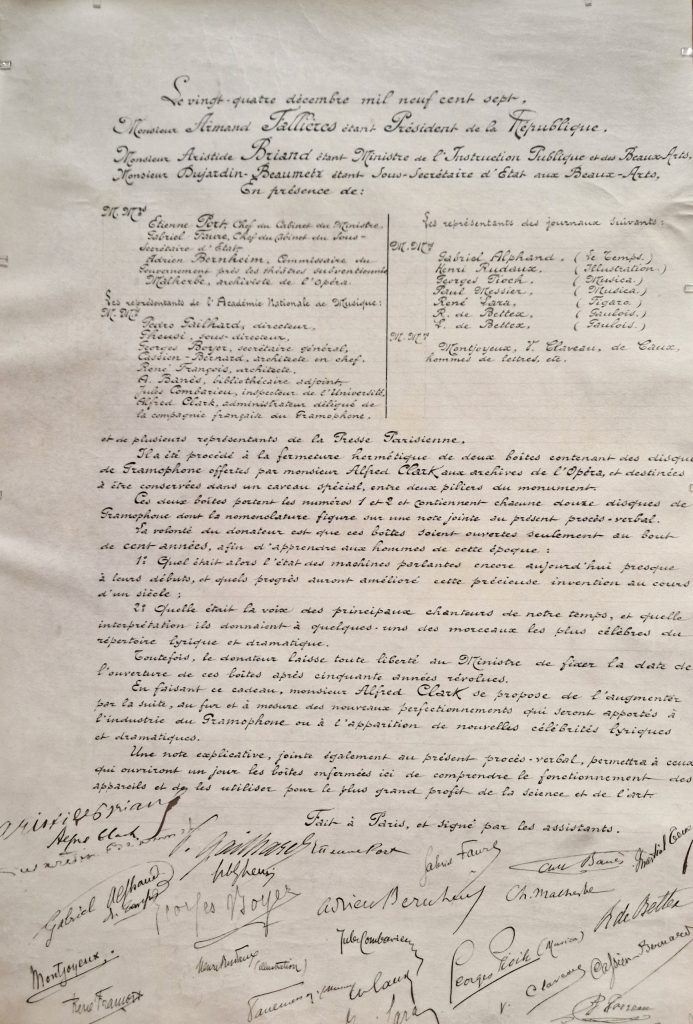 Le vingt-quatre décembre mil neuf cent sept,
Monsieur Armand Fallières étant Président de la République,
Monsieur Aristide Briand étant Ministre de l'Instruction Publique et des Beaux-Arts,
Monsieur Dujardin-Beaumetz étant Sous-Secrétaire d'Etat aux Beaux-Arts,
En présence de :
M. Mrs
Etienne Port, Chef du Cabinet du Ministre.
Gabriel Faure, Chef du Cabinet du Sous-
Secrétaire d'Etat.
Adrien Bernheim, Commissaire du
Gouvernement près les théâtres subventionnés
Malherbe, archiviste de l'Opéra.
Les représentants de l'Académie Nationale de Musique :
M. Mrs
Pedro Gailhard, directeur,
Gheusi, sous-directeur,
Georges Boyer, secrétaire général,
Cassien-Bernard, architecte en chef.
René François, architecte.
A. Banès, bibliothécaire adjoint.
Jules Combarieu, inspecteur de l'Université.
Alfred Clark, administrateur délégué de
la compagnie française du Gramophone.
Les représentants des journaux suivants :
M. Mrs
Gabriel Alphand. (Le Temps.)
Henri Rudaux. (Illustration.)
Georges Pioch. (Musica.)
Paul Messier. (Musica.)
René Lara. (Figaro.)
R. de Bettex. (Gaulois.)
L. de Bettex. (Gaulois.)
M. Mrs
Montjoyeux, V. Claveau, de Caux,
hommes de lettres, etc.
et de plusieurs représentants de la Presse Parisienne.
Il a été procédé à la fermeture hermétique de deux boîtes contenant des disque
de Gramophone offertes par monsieur Alfred Clark aux archives de l'Opéra, et destinées
à être conservées dans un caveau spécial, entre deux piliers du monument.
Ces deux boîtes portent les numéros 1 et 2 et contiennent chacune douze disques de
Gramophone dont la nomenclature figure sur une note jointe au présent procès-verbal.
La volonté du donateur est que ces boîtes soient ouvertes seulement au bout
de cent années, afin d'apprendre aux hommes de cette époque :
1° Quel était alors l'état des machines parlantes encore aujourd'hui presque
à leurs débuts, et quels progrès auront amélioré cette précieuse invention au cours
d'un siècle ;
2° Quelle était la voix des principaux chanteurs de notre temps, et quelle
interprétation ils donnaient à quelques-uns des morceaux les plus célèbres du
répertoire lyrique et dramatique.
Toutefois, le donateur laisse toute liberté au Ministre de fixer la date de
l'ouverture de ces boîtes après cinquante années révolues.
En faisant ce cadeau, monsieur Alfred Clark se propose de l'augmenter
par la suite, au fur et à mesure des nouveaux perfectionnements qui seront apportés à
l'industrie du Gramophone ou à l'apparition de nouvelles célébrités lyriques
et dramatiques.
Une note explicative, jointe également au présent procès-verbal, permettra à ceux
qui ouvriront un jour les boîtes enfermées ici de comprendre le fonctionnement des
appareils et de les utiliser pour le plus grand profit de la science et de l'art.
Fait à Paris, et signé par les assistants.
Aristide Briand
Alfred Clark
Gailhard
Etienne Port
Gabriel Faure
Gheusi
Gabriel Alphand
Georges Boyer
Adrien Bernheim
Ch. Malherbe
R de Bettex
Jules Combarieu
Montjoyeux
Henri Rudaux (illustration)
Georges Pioch (Musica)
V. Claveau
Cassien Bernard
René François
Lara